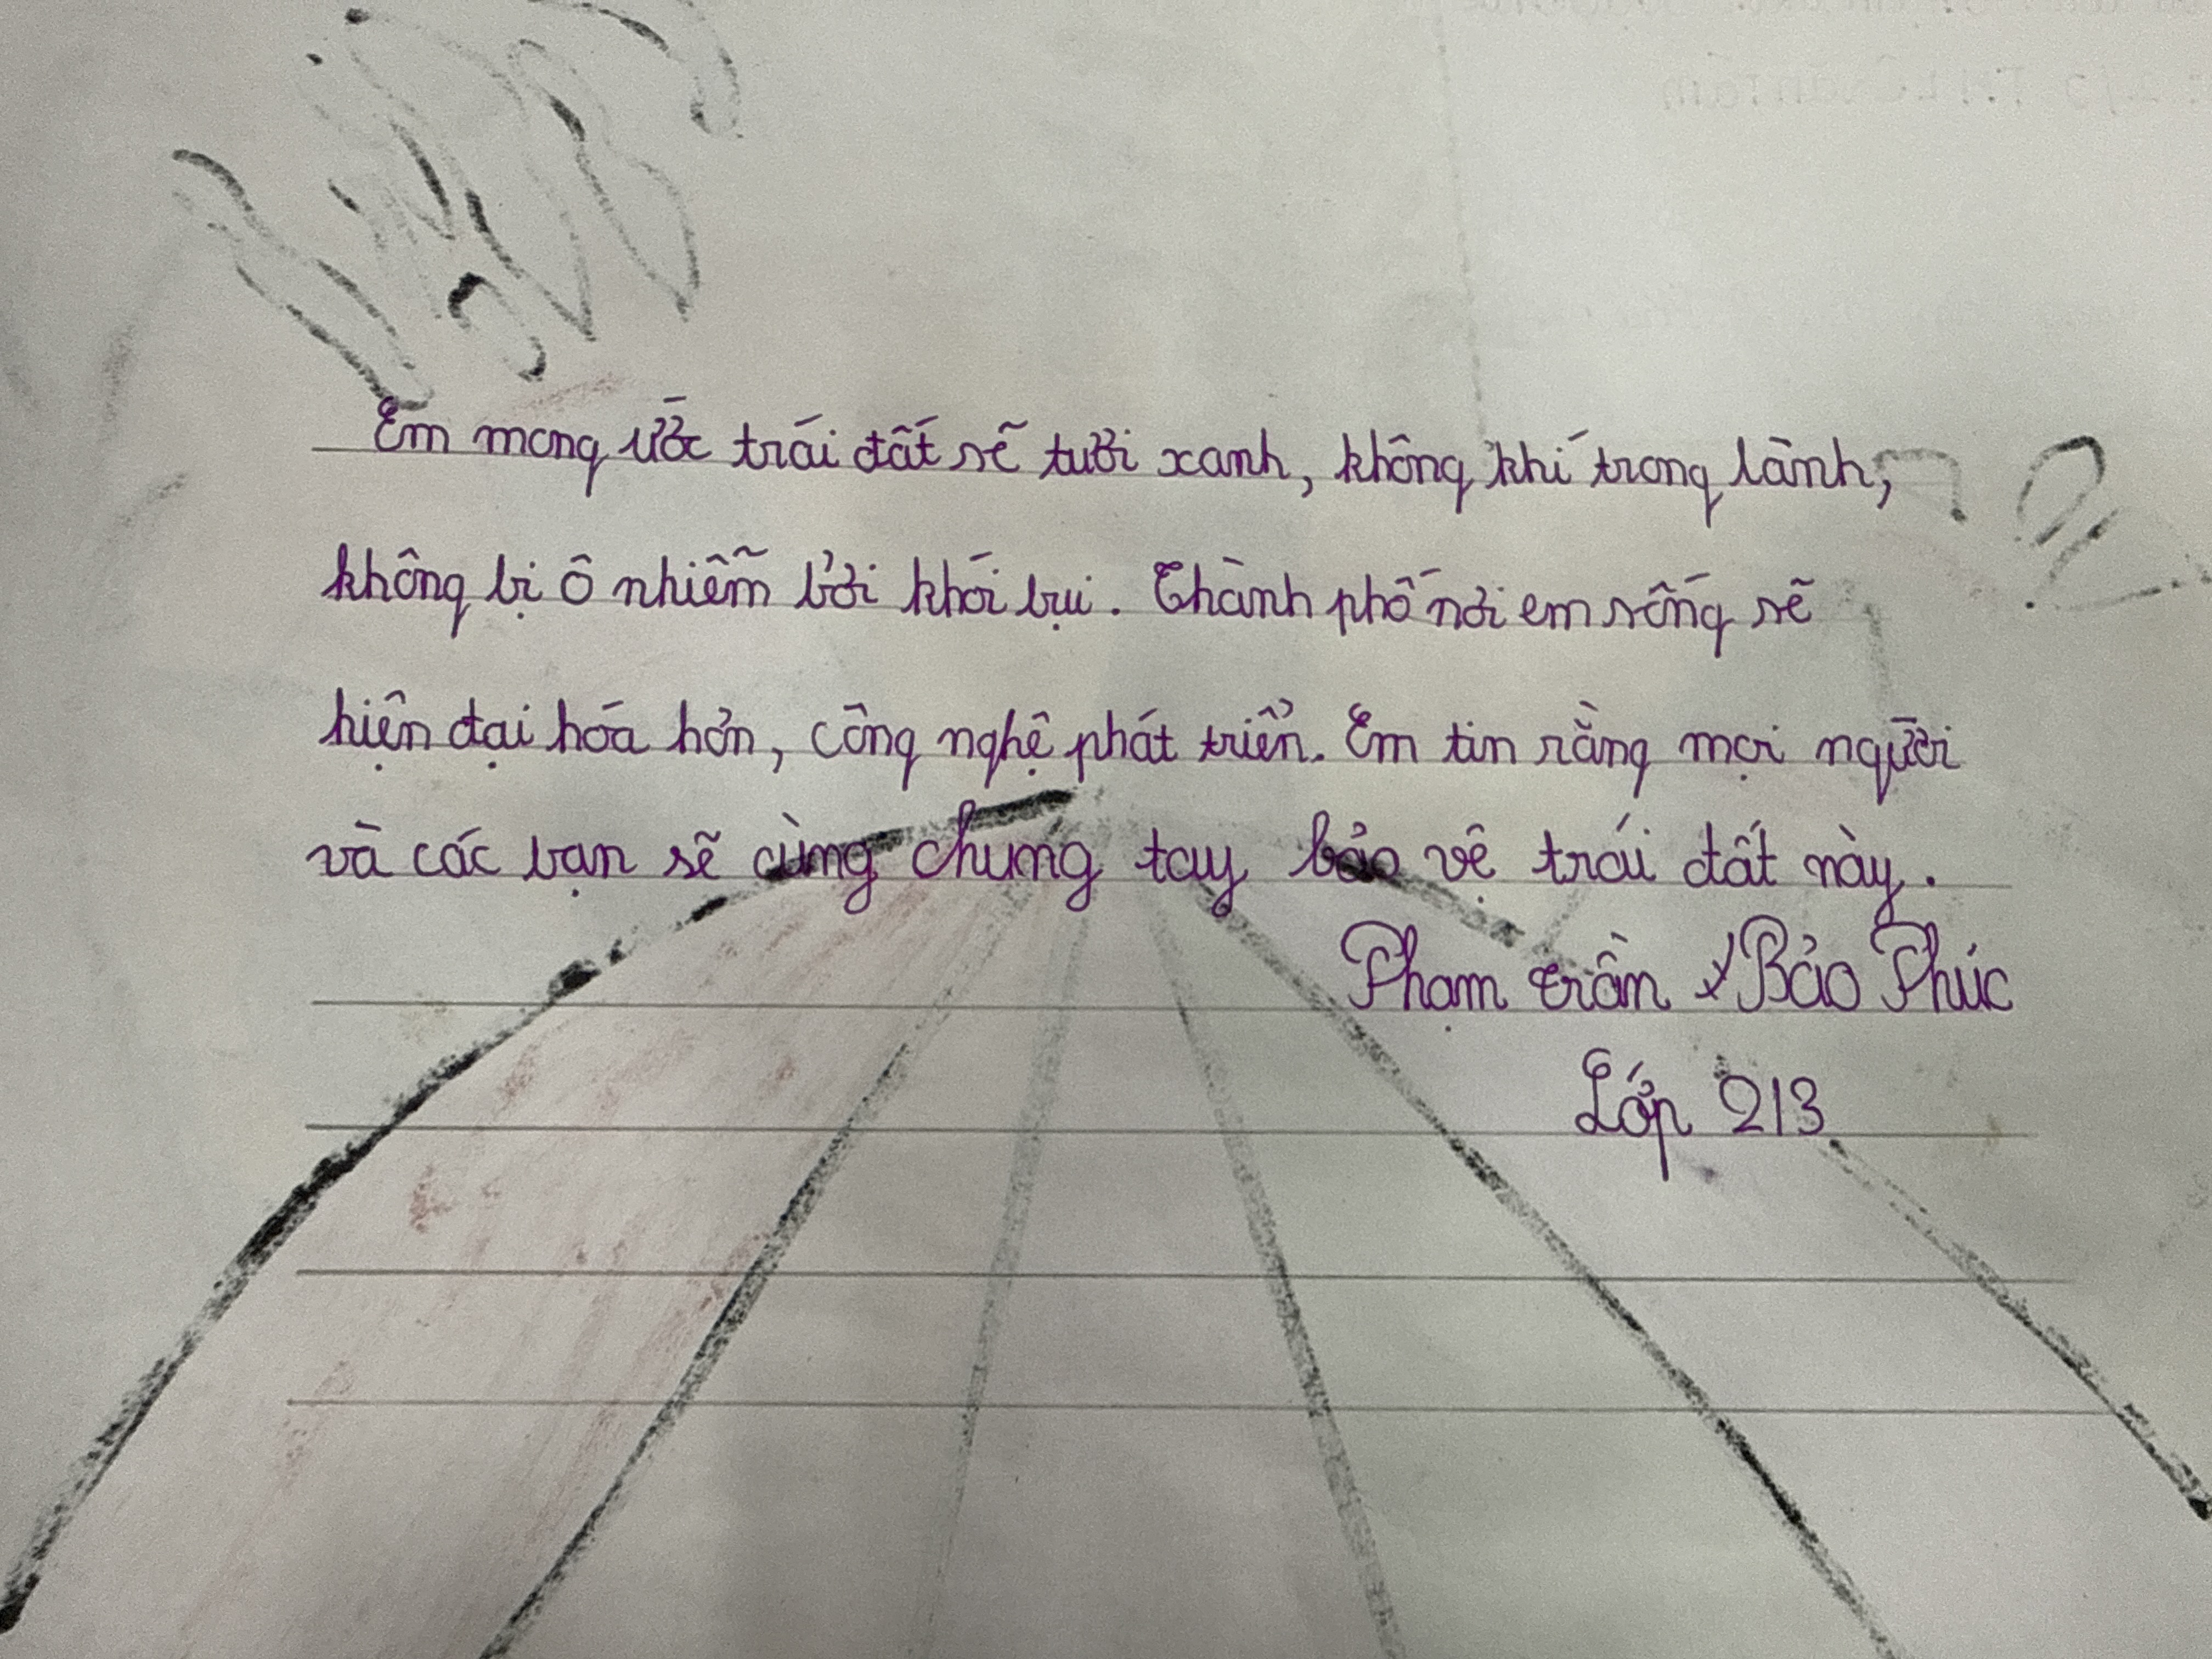 Em mong ước trái đất sẽ tươi xanh, không khí trong lành,
không bị ô nhiễm bởi khói bụi. Thành phố nơi em sống sẽ
hiện đại hóa hơn, công nghệ phát triển. Em tin rằng mọi người
và các bạn sẽ cùng chung tay bảo vệ trái đất này.
Phạm Trần Bảo Phúc
Lớp 2/3